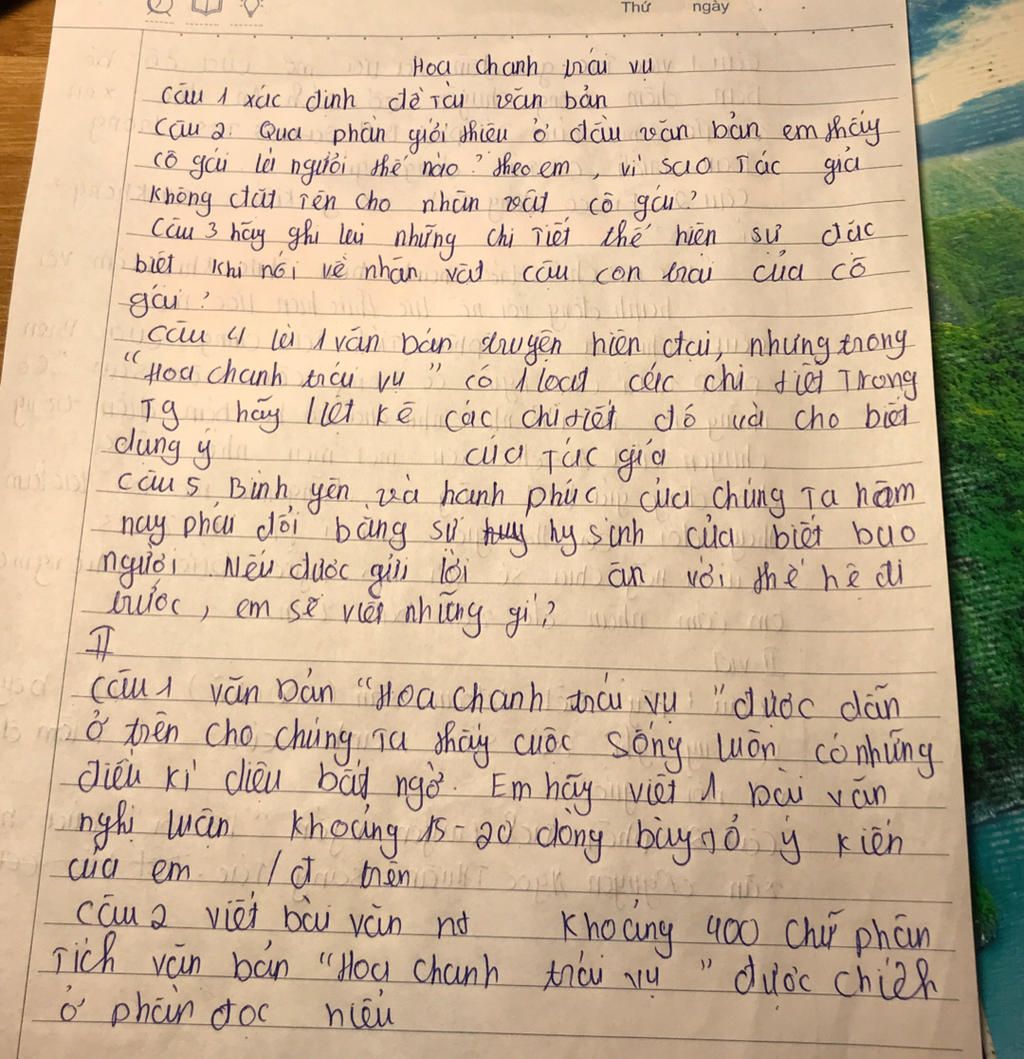 Thứ ngày
Hoa chanh trái vụ
Câu 1 xác định đề tài văn bản
Câu 2. Qua phần giới thiệu ở đầu văn bản em thấy
cô gái là người thế nào? theo em, vì sao tác giả
không đặt tên cho nhân vật cô gái?
Câu 3 hãy ghi lại những chi tiết thể hiện sự đặc
biệt khi nói về nhân vật cậu con trai của cô
gái?
Câu 4 là 1 văn bản truyện hiện đại, nhưng trong
"Hoa chanh trái vụ" có 1 loạt các chi tiết Trong
Tg hãy liệt kê các chi tiết đó và cho biết
dụng ý của tác giả
Câu 5 Bình yên và hạnh phúc của chúng ta hôm
nay phải đổi bằng sự hy sinh của biết bao
người. Nếu được gửi lời ơn với thế hệ đi
trước, em sẽ viết những gì?
II
Câu 1 văn bản "Hoa chanh trái vụ" được dẫn
ở trên cho chúng ta thấy cuộc sống luôn có những
điều kì diệu bất ngờ. Em hãy viết 1 bài văn
nghị luận khoảng 15-20 dòng bày tỏ ý kiến
của em /đ trên
Câu 2 viết bài văn nd khoảng 400 chữ phân
Tích văn bản "Hoa chanh trái vụ" được chích
ở phần đọc hiểu